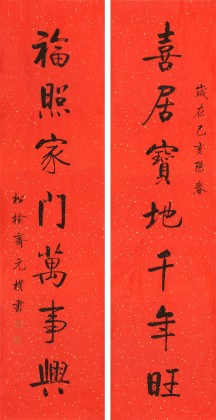 喜居寶地千年旺
歲在己亥陽春
福照家門萬事興
松榆齋元樸書